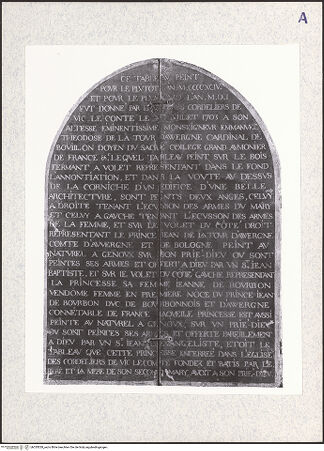 A
CE TABLEAV PEINT
POVR LE PLVTOT EN M.CCCC.XCIV.
ET POVR LE PLVS LAN M.D.I
FVT DONNE PAR LES CORDELIERS DE
VIC LE CONTE LE JVILLET 1703 A SON
ALTESSE EMINENTISSIME MONSEIGNEVR EMMANVEL
THEODOSE DE LA TOVR D'AVERGNE CARDINAL DE
BOVILLON DOYEN DV SACRE COLLEGE GRAND AVMONIER
DE FRANCE &. LEQVEL TABLEAV PEINT SVR LE BOIS
FERMANT A VOLET REPRESENTANT DANS LE FOND
L'ANONTIATION, ET DANS LA VOVTE AV DESSVS
DE LA CORNICHE D'VN EDIFICE D'VNE BELLE
ARCHITECTVRE, SONT PEINTS DEVX ANGES, CELVY
A DROITE TENANT L'ECVSSON DES ARMES DV MARY
ET CELVY A GAVCHE TENANT L'ECVSSON DES ARMES
DE LA FEMME, ET SVR LE VOLET DV COTE DROIT
REPRESENTANT LE PRINCE JEAN DE LA TOVR D'AVERGNE
COMTE D'AVERGNE ET DE BOLOGNE PEINT AV
NATVREL A GENOVX SVR VN PRIE-DIEV OV SONT
PEINTES SES ARMES ET OFFERT A DIEV PAR VN St. JEAN
BAPTISTE, ET SVR LE VOLET DV COTE GAVCHE REPRESENTANT
LA PRINCESSE SA FEMME JEANNE DE BOVRBON
VENDOME FEMME EN PREMIERE NOCE DV PRINCE JEAN
DE BOVRBON DVC DE BOVRBONNOIS ET D'AVERGNE
CONNETABLE DE FRANCE PRINCESSE EST AVSSI
PEINTE AV NATVREL A GENOVX, SVR VN PRIE-DIEV
OV SONT PEINTES SES ARMES ET OFFERTE PAREILLEMENT
A DIEV PAR VN St. JEAN L'EVANGELISTE, ETOIT LE
TABLEAV QVE CETTE PRINCESSE ENTERREE DANS L'EGLISE
DES CORDELIERS DE VIC LE COMTE FONDEE ET BATIE PAR LE
PERE ET LA MERE DE SON SECOND MARY, AVOIT A SON PRIE-DIEV